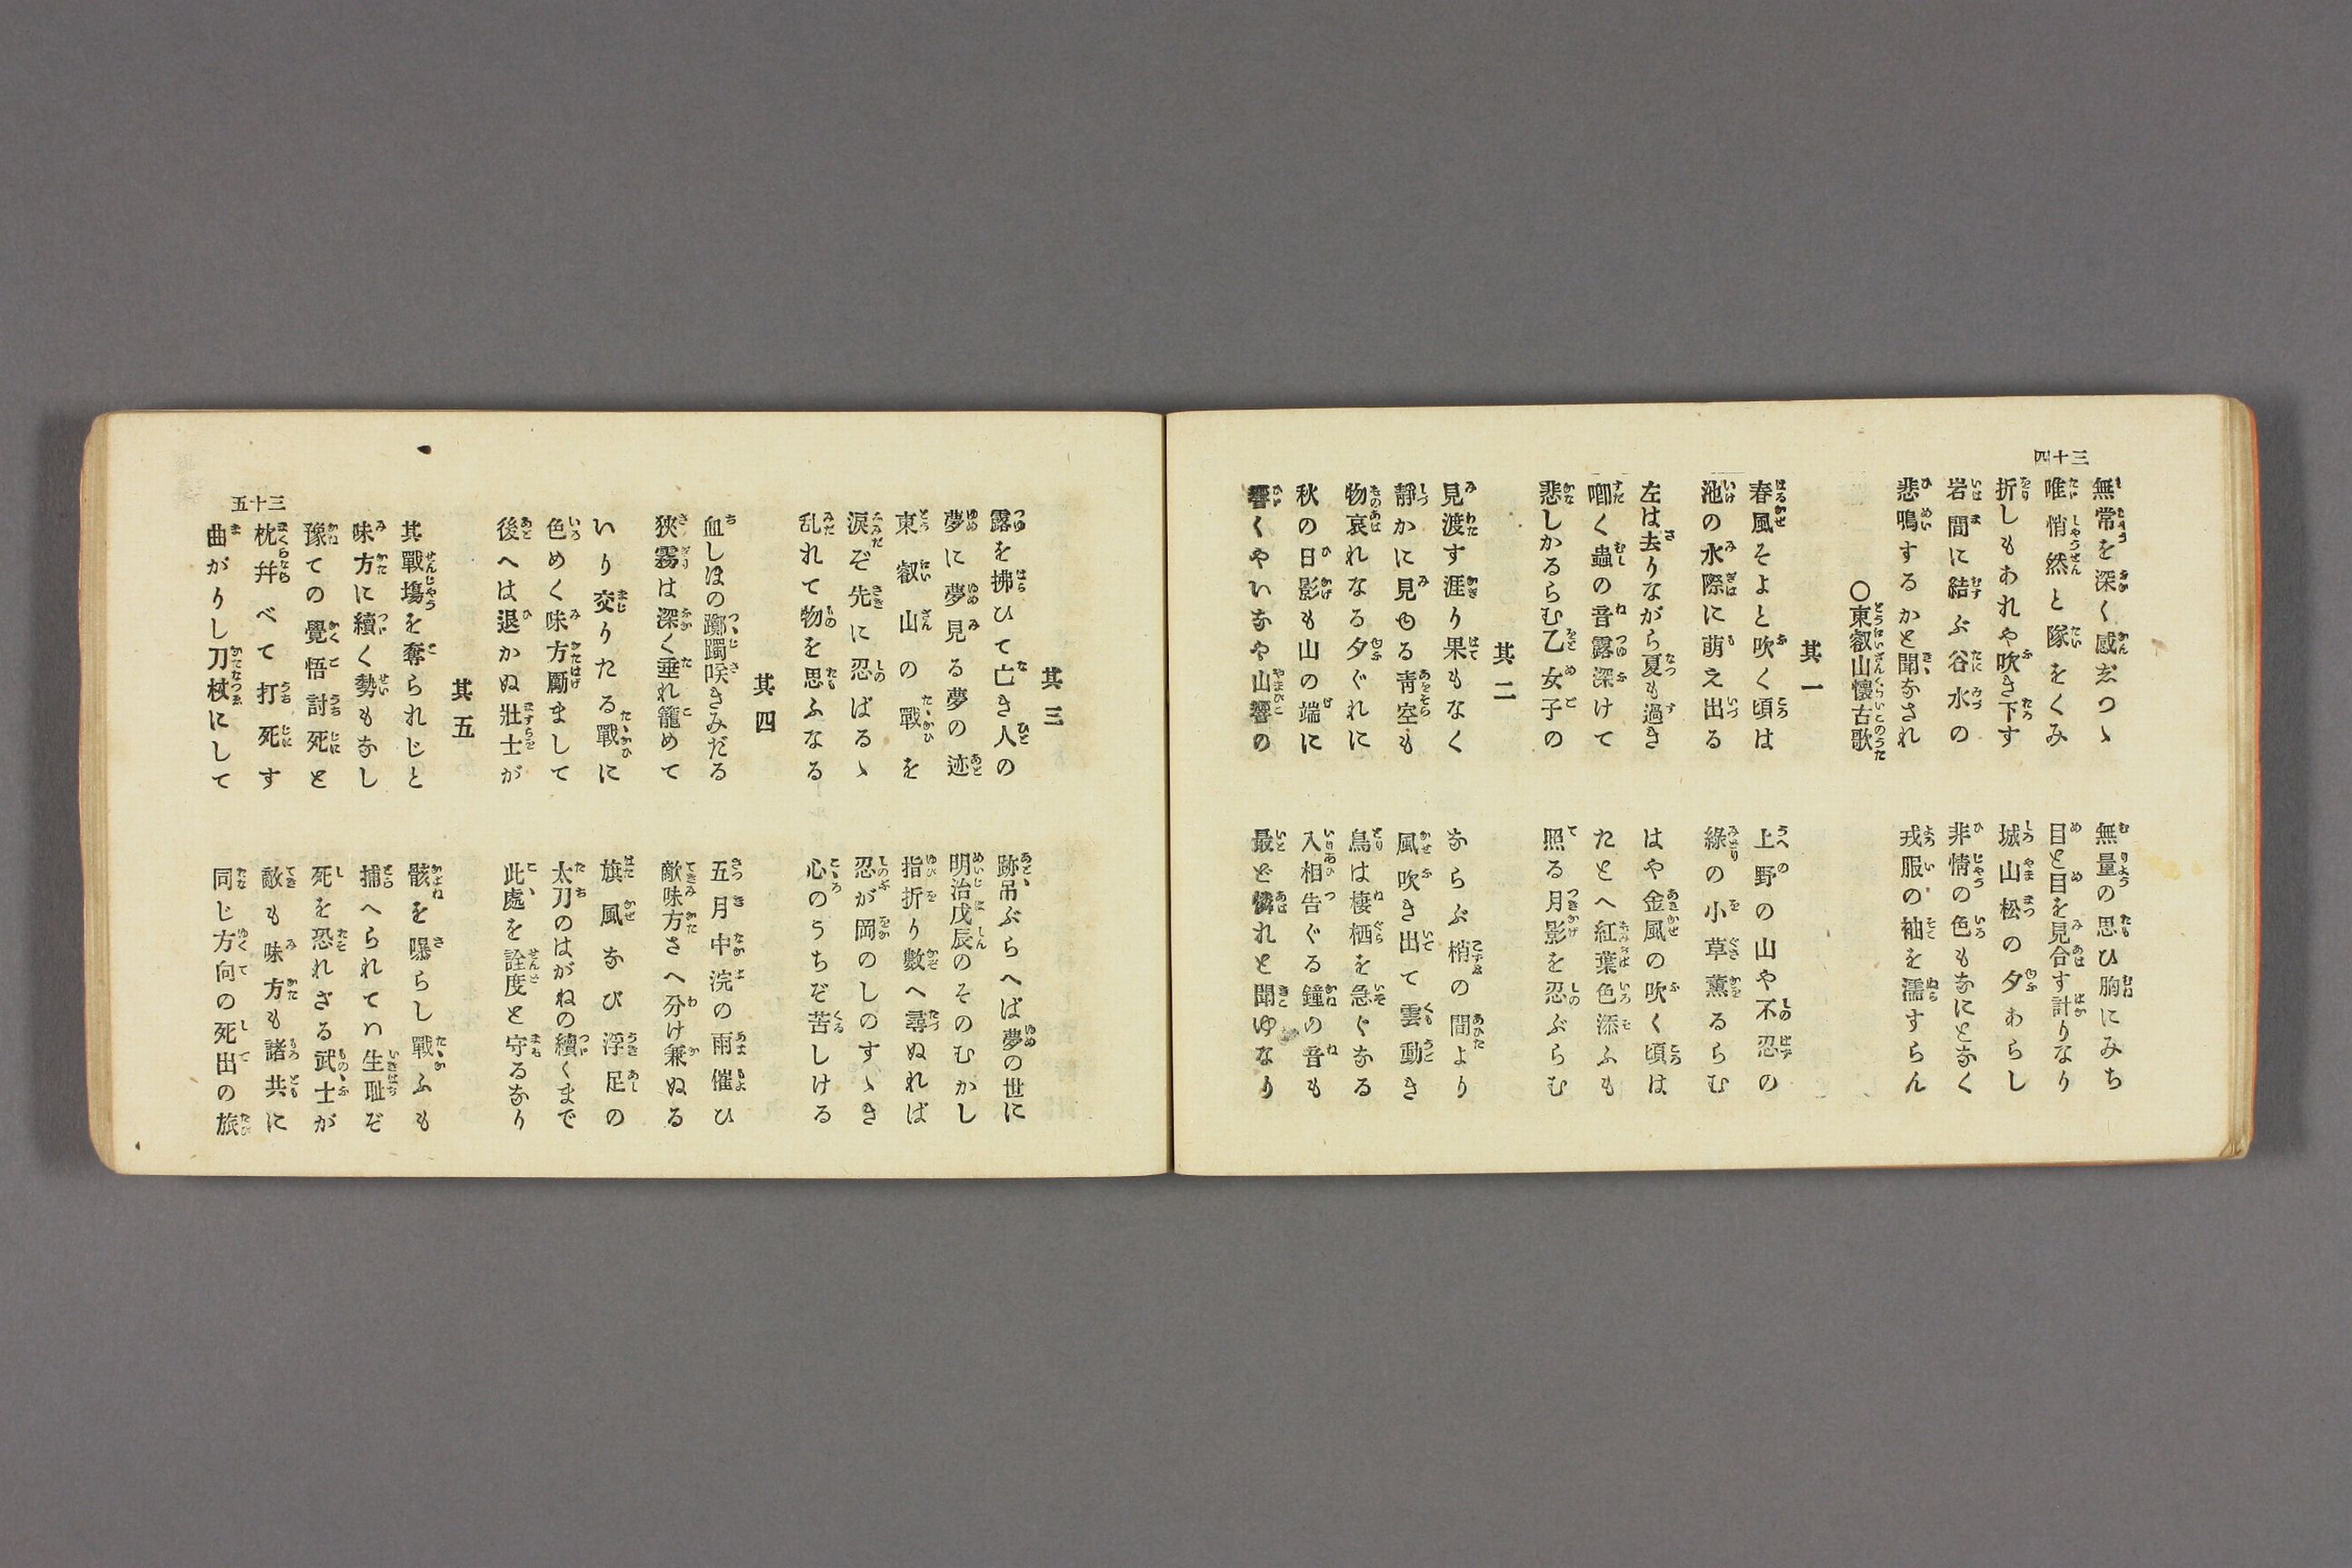 三十四
無常を深く感じつゝ　無量の思ひ胸にみち
唯悄然と隊をくみ　目と目を見合す計りなり
折しもあれや吹き下す　城山松の夕あらし
岩間に結ぶ谷水の　非情の色もなにとなく
悲鳴するかと聞なされ　戎服の袖を濡すらん
〇東叡山懐古歌
其一
春風そよと吹く頃は　上野の山や不忍の
池の水際に萌え出る　綠の小草薫るらむ
左は去りながら夏も過き　はや金風の吹く頃は
喞く蟲の音露深けて　たとへ紅葉色添ふも
悲しかるらむ乙女子の　照る月影を忍ぶらむ
其二
見渡す涯り果もなく　ならぶ梢の間より
靜かに見ゆる靑空も　風吹き出て雲動き
物哀れなる夕ぐれに　鳥は棲栖を急ぐなる
秋の日影も山の端に　入相告ぐる鐘の音も
響くやいなや山響の　最ど憐れと聞ゆなり
其三
露を拂ひて亡き人の　跡吊ぶらへば夢の世に
夢に夢見る夢の迹　明治戊辰のそのむかし
東叡山の戰を　指折り數へ尋ぬれば
淚ぞ先に忍ばるゝ　忍が岡のしのすゝき
乱れて物を思ふなる　心のうちぞ苦しける
其四
血しほの躑躅咲きみだる　五月中浣の雨催ひ
狹霧は深く垂れ籠めて　敵味方さへ分け兼ぬる
いり交りたる戰に　旗風なび浮足の
色めく味方勵まして　太刀のはがねの續くまで
後へは退かぬ壯士が　此處を詮度と守るなり
其五
其戰塲を奪られじと　骸を曝らし戰ふも
味方に續く勢もなし　捕へられてハ生耻ぞ
豫ての覺悟討死と　死を恐れざる武士が
枕并べて打死す　敵も味方も諸共に
曲がりし刀杖にして　同じ方向の死出の旅
三十五